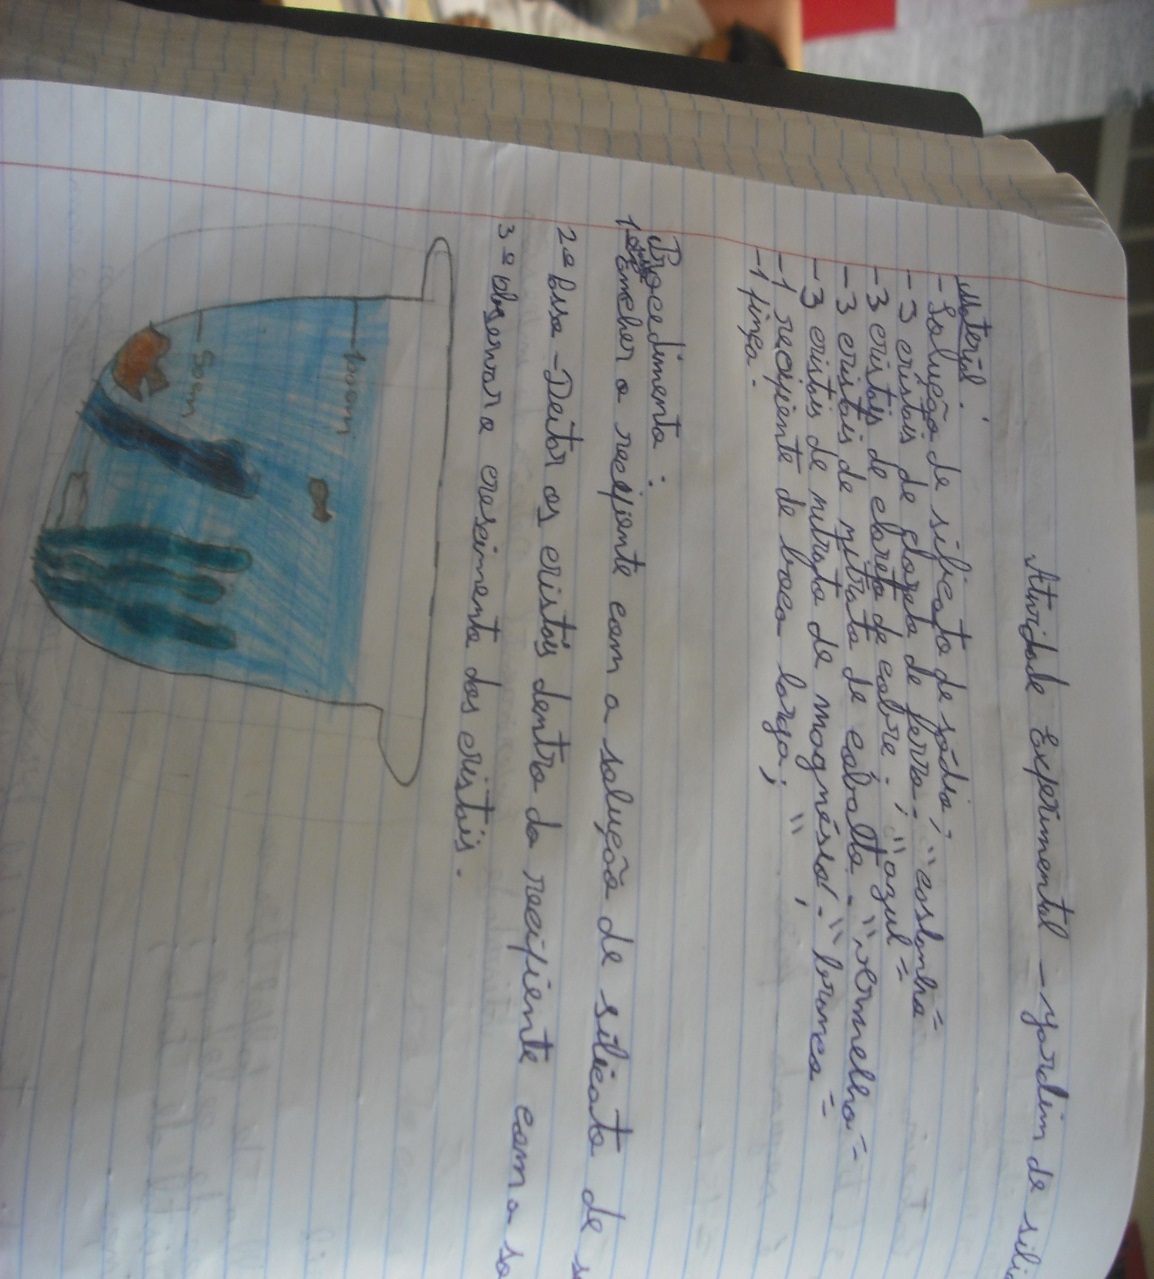 Atividade Experimental - Jardim de sili
Material:
- Solução de silicato de sódio;
- 3 cristais de cloreto de ferro. "castanho"
- 3 cristais de cloreto de cobre; "azul"
- 3 cristais de nitrato de cobalto. "vermelho"
- 3 cristais de nitrato de magnésio. "branco"
- 1 recipiente de boca larga;
- 1 pinça.
Procedimento:
o recipiente com a solução de silicato de s
- Deitar os cristais dentro do recipiente com a so
3º observar o crescimento dos cristais.
100ml
50ml